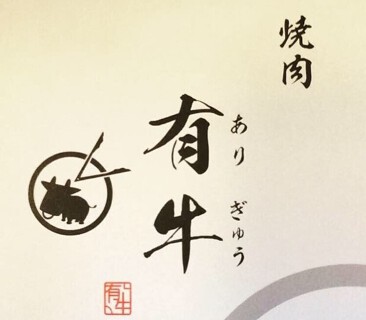 焼肉
ありぎゅう
有牛
有牛